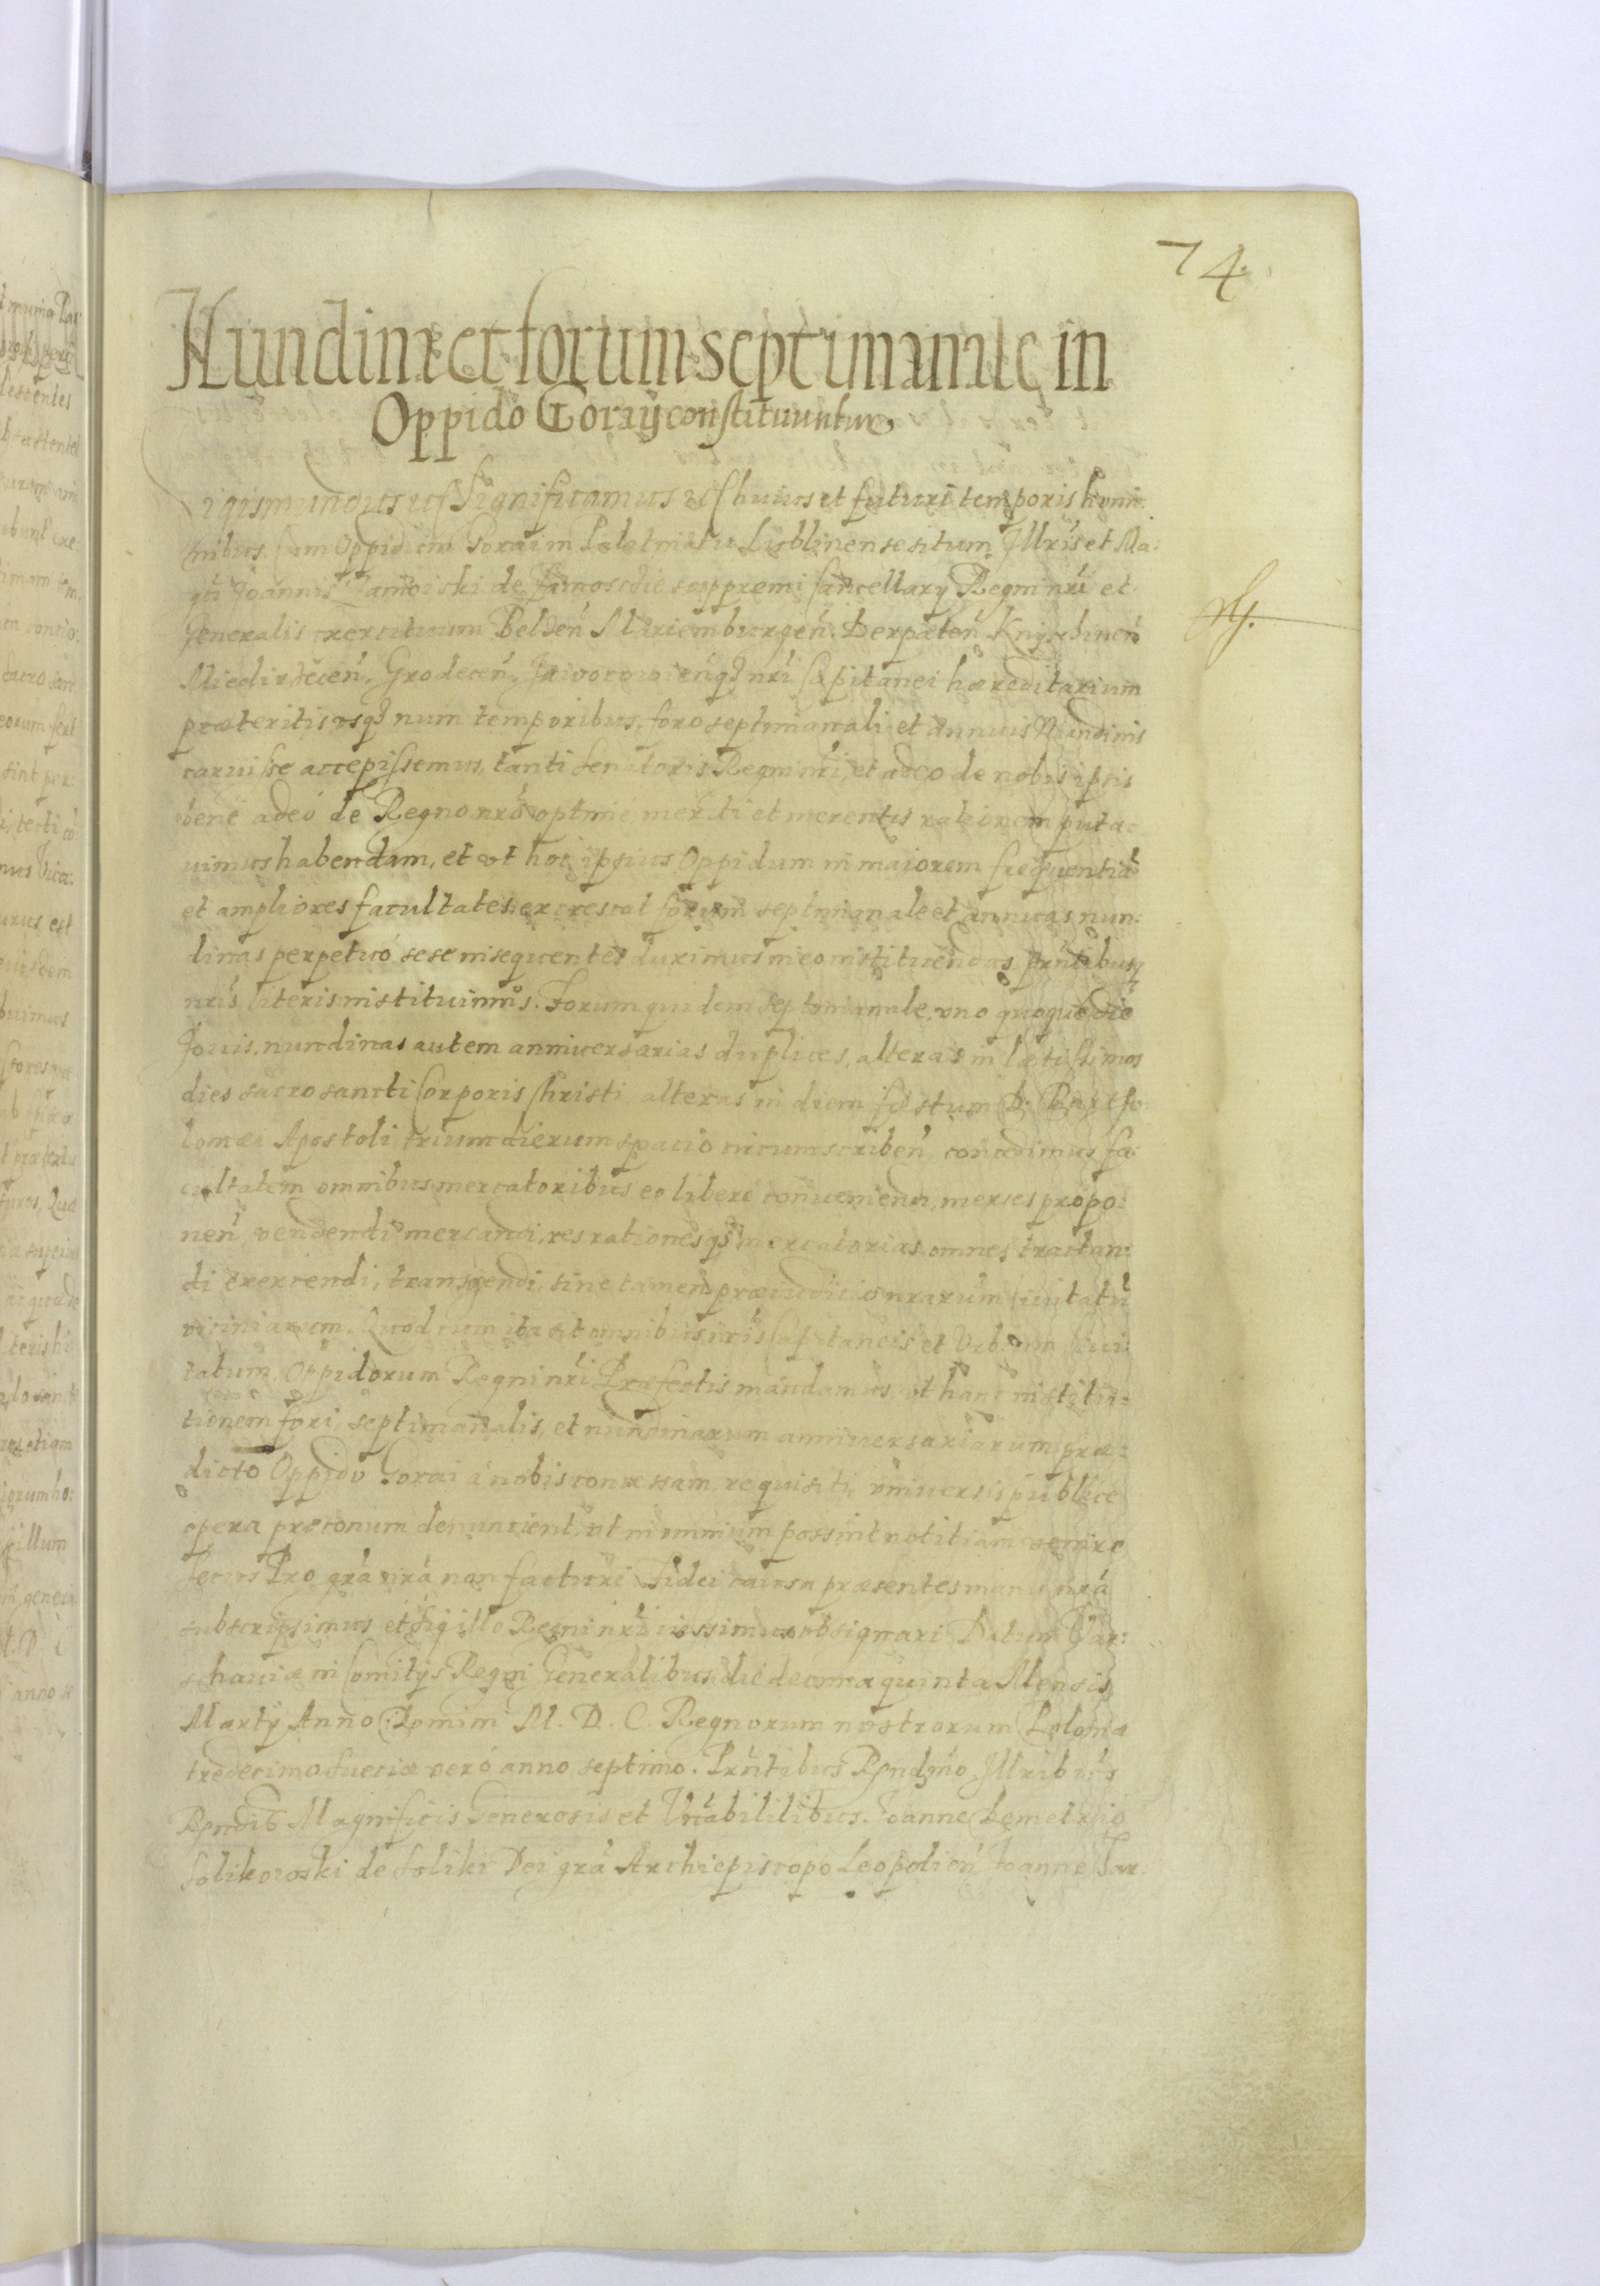 74.
Nundinæ et forum septimanale in
Oppido Goraij constituuntur
Sigismundus etc Significamus etc huius et futuri temporis homi:
nibus. Cum Oppidum Gorai in Palatinatu Lublinensi situm Illris et Ma:
gci Joannis Zamoiski de Zamoscie supremi Cancellarij Regni nri et
Generalis exercituum Belzen̄ Mariemburgen̄. Derpaten̄ Knijschinen̄
Miedirzecen̄, Grodecen̄ q̃ nri Capitanei hæreditarium
præteritis usq̃ num temporibus, foro septimanali et annuis Nundinis
caruisse accepissemus, tanti Senatoris Regni nri, et adeo de nobis ipsis
bene adeó de Regno nro optime meriti et merentis rationem puta:
uimus habendam, et ut hoc ipsius Oppidum in maiorem frequentiā
et ampliores facultates excrescat forum septimanale et annuas nun:
dinas perpetuó sese insequentes duximus in eo instituendas, prntibusq̃
nris literis instituimus. Forum quidem septimanale, uno quoque die
Jouis, nundinas autem anniuersarias duplices, alteras in lætissimos
dies sacrosancti Corporis Christi alteras in diem festum D. Bartho:
lomæi Apostoli trium dierum spacio circumscriben̄ concedimus fa:
cultatem omnibus mercatoribus eo libere conueniendi, merces propo:
nen̄ vendendi mercandi, res rationesq̃ mercatorias omnes tractan:
di exercendi, transigendi, sine tamen præiudicio nrarum ciuitatū
viciniarum. Quod cum ita sit omnibus nris Capitaneis et Urbium Ciui:
tatum, Oppidorum Regni nri Præfectis mandamus, ut hanc institu:
tionem fori septimanalis, et nundinarum anniuersariarum præ:
dicto Oppido Gorai á nobis concessam requisiti, vniuersis publice
opera præconum denuncient, ut in omnium possint notitiam venire
Secus Pro grā nrā non facturi Fidei causa præsentes manu nrā
subscripsimus et Sigillo Regni nri iussimus obsignari Datum Var:
schauiæ in Comitijs Regni Generalibus die decima quinta Mensis
Martij Anno Domini M. D. C. Regnorum nostrorum Poloniæ
tredecimo Sueciæ veró anno septimo. Prntibus Rendmo Illribus
Rendis Magnificis Generosis et Notabilibus. Joanne Demetrio
Solikowski de Soliki Dei grā Archiepiscopo Leopolien̄ Joanne Tar: